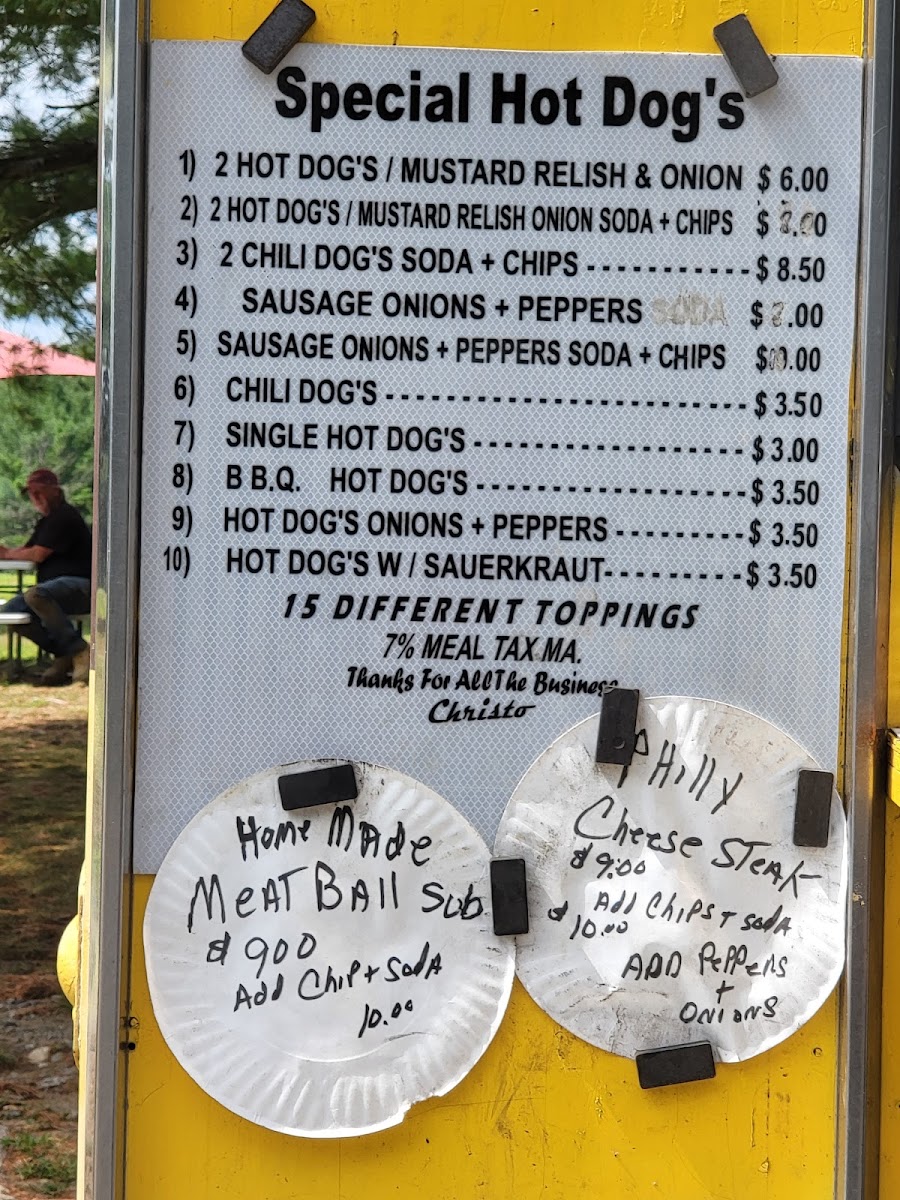 Special Hot Dog's
1) 2 HOT DOG'S / MUSTARD RELISH & ONION $ 6.00
2) 2 HOT DOG'S / MUSTARD RELISH ONION SODA + CHIPS $
3) 2 CHILI DOG'S SODA + CHIPS - - - - - - - - - - - $ 8.50
4) SAUSAGE ONIONS + PEPPERS SODA $
5) SAUSAGE ONIONS + PEPPERS SODA + CHIPS
6) CHILI DOG'S - - - - - - - - - - - - - - - - - - - - - - - - $ 3.50
7) SINGLE HOT DOG'S - - - - - - - - - - - - - - - - - - $ 3.00
8) B B.Q. HOT DOG'S - - - - - - - - - - - - - - - - - - $ 3.50
9) HOT DOG'S ONIONS + PEPPERS - - - - - - - - - $ 3.50
10) HOT DOG'S W / SAUERKRAUT- - - - - - - - - - $ 3.50
15 DIFFERENT TOPPINGS
7% MEAL TAX MA.
Thanks For All The Business
Christo
Home Made
MEAT BAll Sub
$ 900
Add Chip + SodA
10.00
PHilly
Cheese STeaK
$ 9.00
Add CHiPS + SodA
$ 10.00
ADD PePPeRS
+
ONIONS